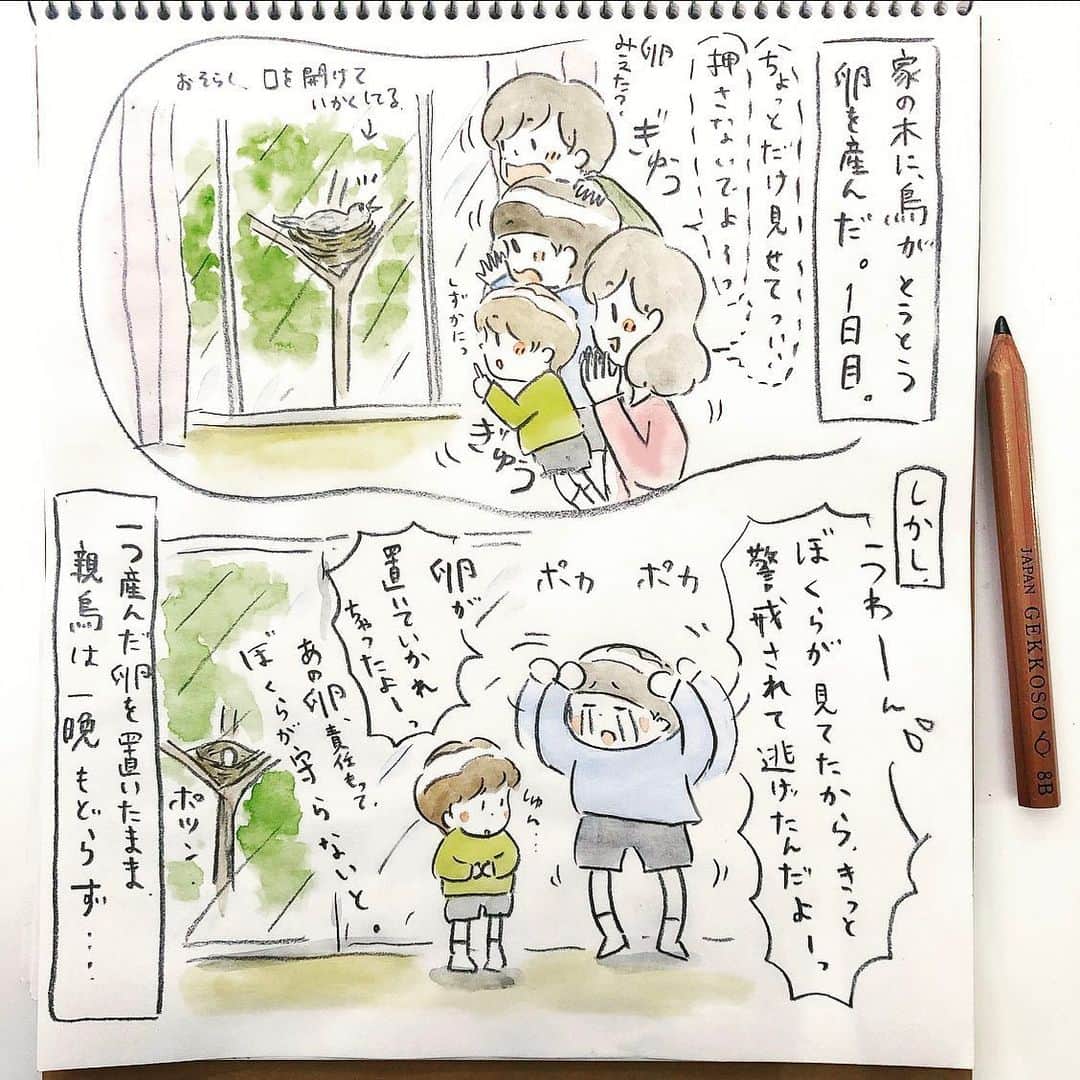 家の木に、鳥がとうとう
卵を産んだ。1日目。
ちょっとだけ見せてっいい
押さないでよ〜っ
卵
みえたっ?
ぎゅっ
おそらく、口を開けて
いかくしてる。
しずかにっ
ぎゅうっ
しかし、
うわーん
ぼくらが見てたから、きっと
警戒されて逃げたんだよーっ
ポカ
ポカ
卵が
置いていかれ
ちゃったよーっ
あの卵、責任もって、
ぼくらが守らないと。
しゅん…
ポツン
一つ産んだ卵を置いたまま、
親鳥は一晩もどらず…
JAPAN GEKKOSO 8B